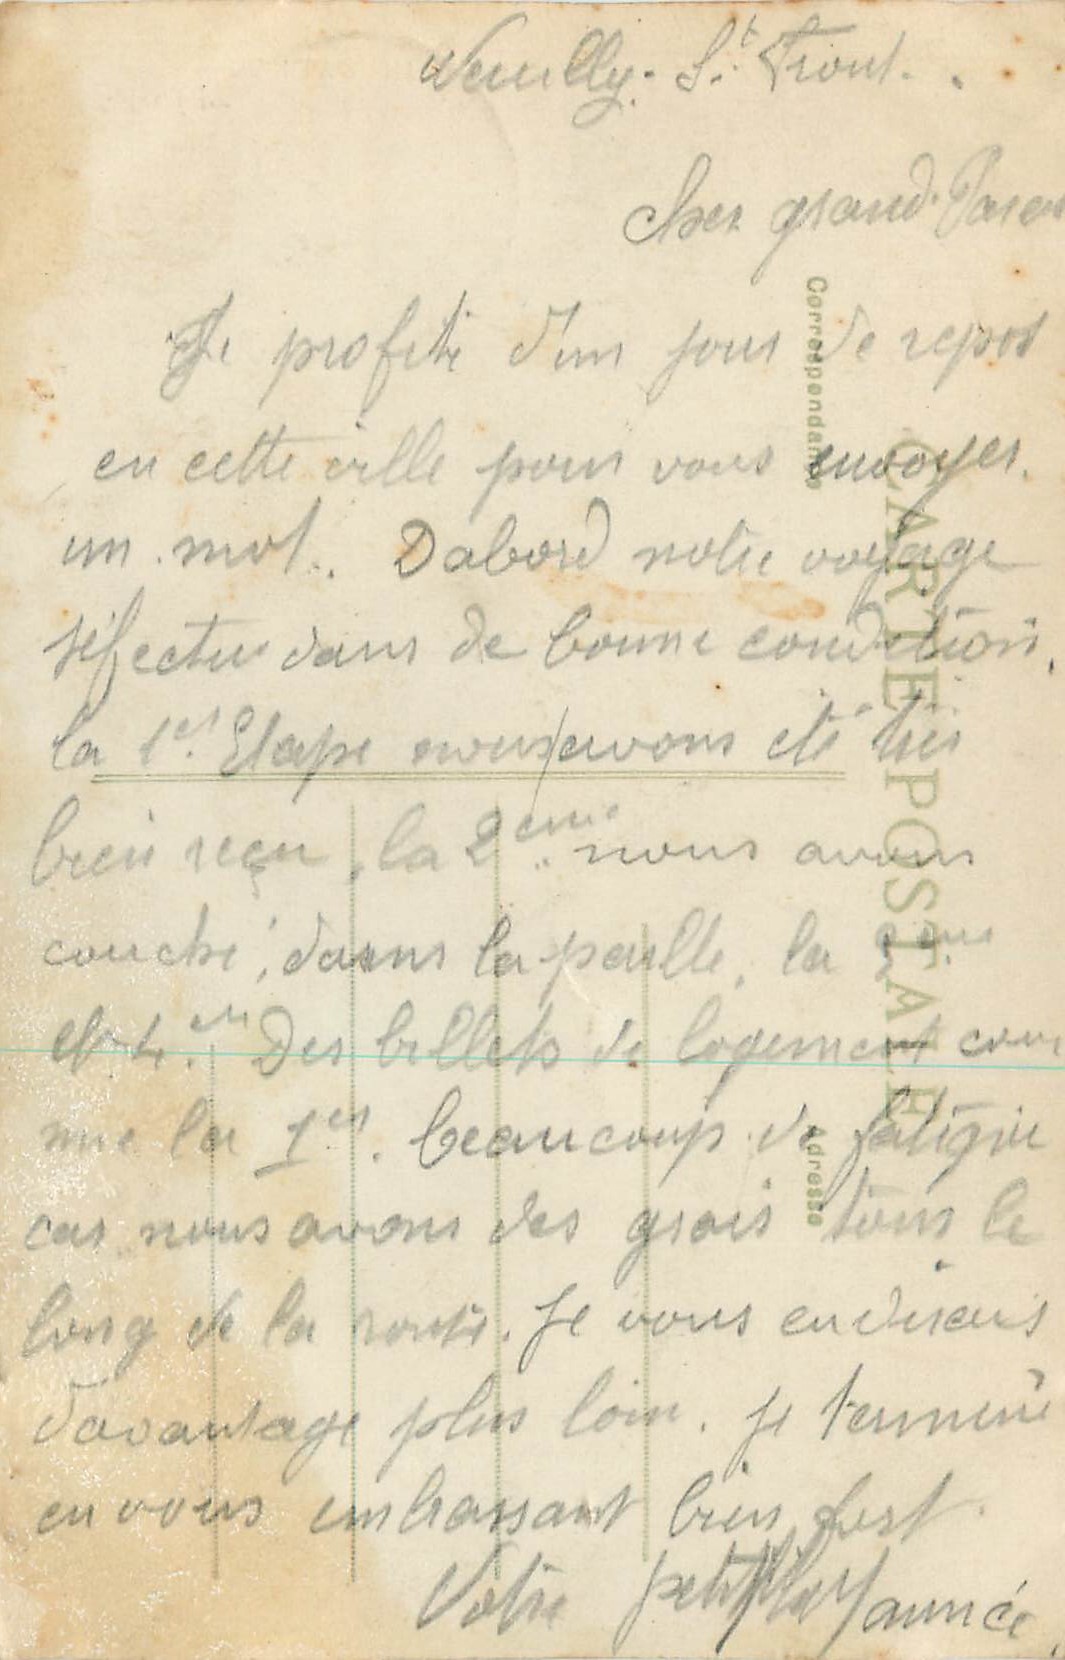 Neuilly. St. Front.
Cher grand. Parent
Je profite d'un jour de repos
en cette ville pour vous envoyer.
un mot. Dabord notre voyage
s'éfectue dans de bonne condition,
la 1er Etape nous avons été très
bien reçu, la 2eme nous avons
couché, dans la paille, la
et 4.em Des billets de logement com
me la 1er. beaucoup de fatigue
car nous avons des grais tous le
long de la route. Je vous en dirais
davantage plus loin. je termine
en vous embrassant bien fort.
Votre petit fils
Correspondance
CARTE POSTALE
Adresse